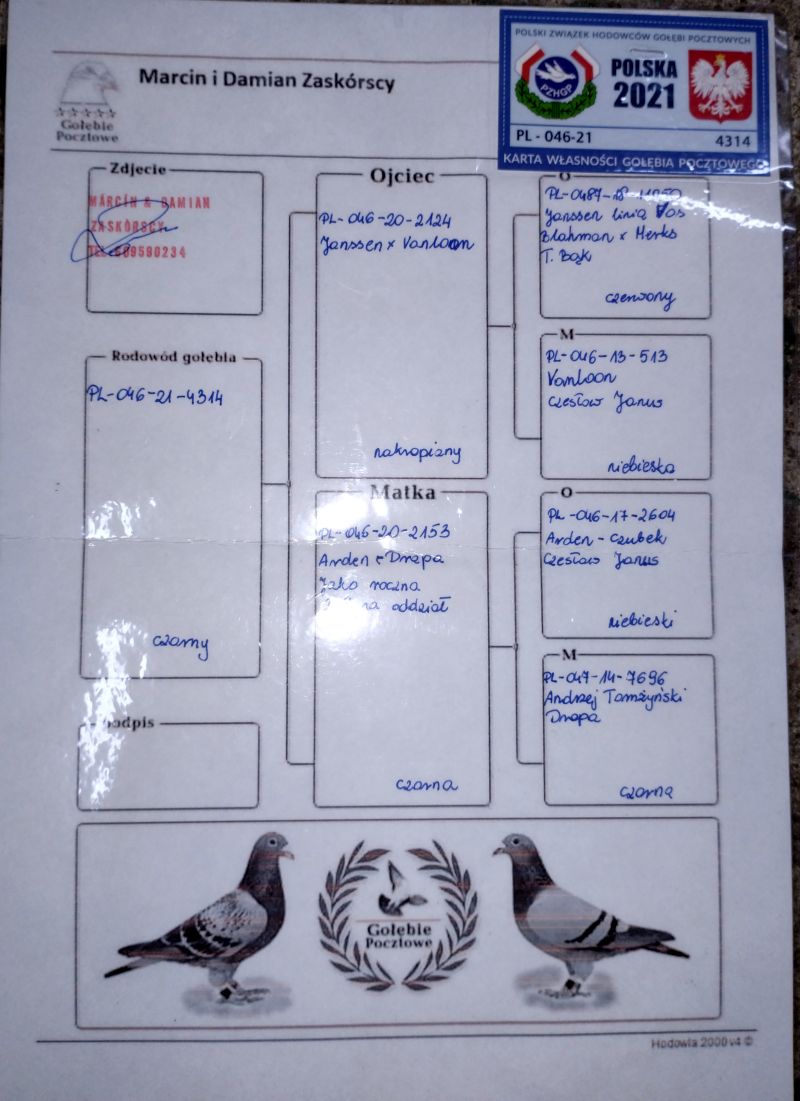 POLSKI ZWIĄZEK HODOWCÓW GOŁĘBI POCZTOWYCH
PZHGP
POLSKA
2021
PL - 046-21
4314
KARTA WŁASNOŚCI GOŁĘBIA POCZTOWEGO
Marcin i Damian Zaskórscy
Gołębie
Pocztowe
Zdjecie
MARCIN & DAMIAN
ZASKÓRSCY
Rodowód gołębia
PL-046-21-4314
czarny
Ojciec
PL-046-20-2124
Janssen x Vanloon
nakrapiany
Matka
PL-046-20-2153
Arden x Drapa
Jako roczna
oddział
czarna
O
Janssen linia Vos
Blahman x Merks
T. Bąk
czerwony
M
PL-046-13-513
Vanloon
Czesław Janus
niebieska
O
PL-046-17-2604
Arden - Czubek
Czesław Janus
niebieski
M
PL-047-14-7696
Andrzej Tomżyński
Drapa
czarna
Gołębie
Pocztowe
Hodowla 2000 v4 ©